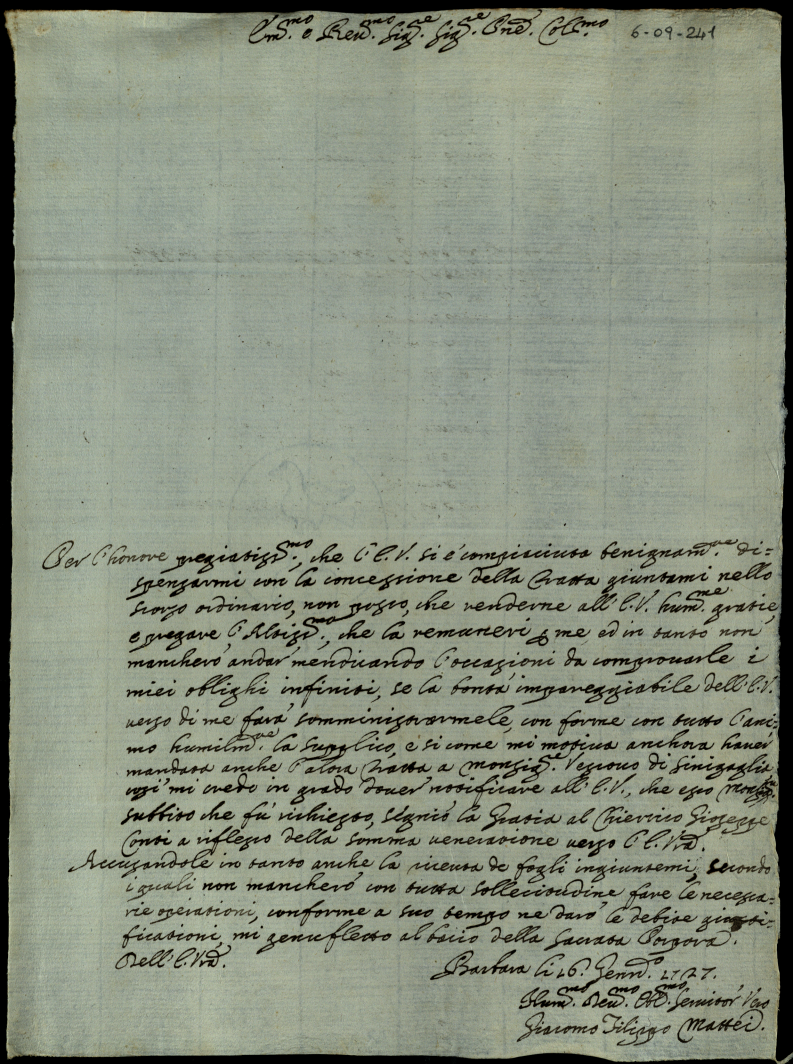 Em.mo e Rev.mo Sig.re Sig.re Pne. Coll.mo 6-09-241
Per l'honore pregiatiss.mo, che l'E.V. si è compiaciuta benignam.te di=
spensarmi con la concessione della tratta giuntami nello
scorso ordinario, non posso, che renderne all'E.V. hum.me gratie,
e pregare l'Altiss.mo, che la remuneri p me ed in tanto non
mancherò andar mendicando l'occasioni da comprovarle i
miei oblighi infiniti, se la bontà impareggiabile dell'E.V.
verso di me farà somministrarmele, con forme con tutto l'ani=
mo humilm.te la supplico, e si come mi motiva anchora haver
mandata anche l'altra tratta a monsig.re Vescovo di Sinigaglia
così mi credo in grado dover notificare all'E.V., che esso Monsig.re
subbito che fù richiesto, segnò la Gratia al Chierico Gioseppe
Conti a riflesso della somma veneratione verso l'E. Vrã.
Accusandole in tanto anche la riceuta de fogli ingiuntemi, secondo
i quali non mancherò con tutta sollecitudine fare le necessa=
rie operationi, conforme a suo tempo ne darò le debite giusti=
ficationi, mi genufletto al bacio della Sacrata Porpora.
Dell'E. Vrã.
Barbara li 16. Genn.o 1727.
Hum.mo Dev.mo Obl.mo Servitor Vero
Giacomo Filippo Mattei.